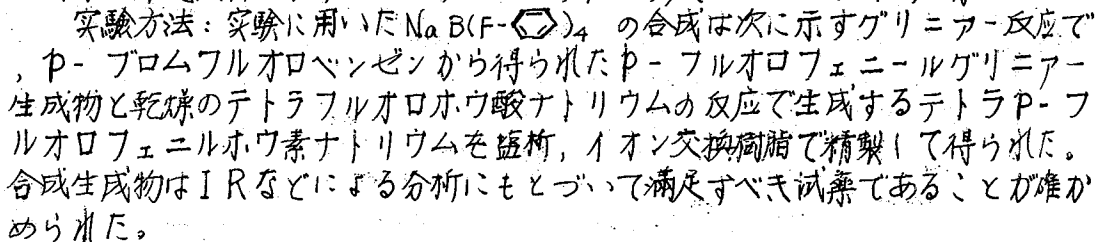 実験方法:実験に用いたNaB(F-⌬)₄ の合成は次に示すグリニアー反応で
,p-ブロムフルオロベンゼンから得られたp-フルオロフェニールグリニアー
生成物と乾燥のテトラフルオロホウ酸ナトリウムの反応で生成するテトラp-フ
ルオロフェニルホウ素ナトリウムを塩析,イオン交換樹脂で精製して得られた。
合成生成物はIRなどによる分析にもとづいて満足すべき試薬であることが確か
められた。